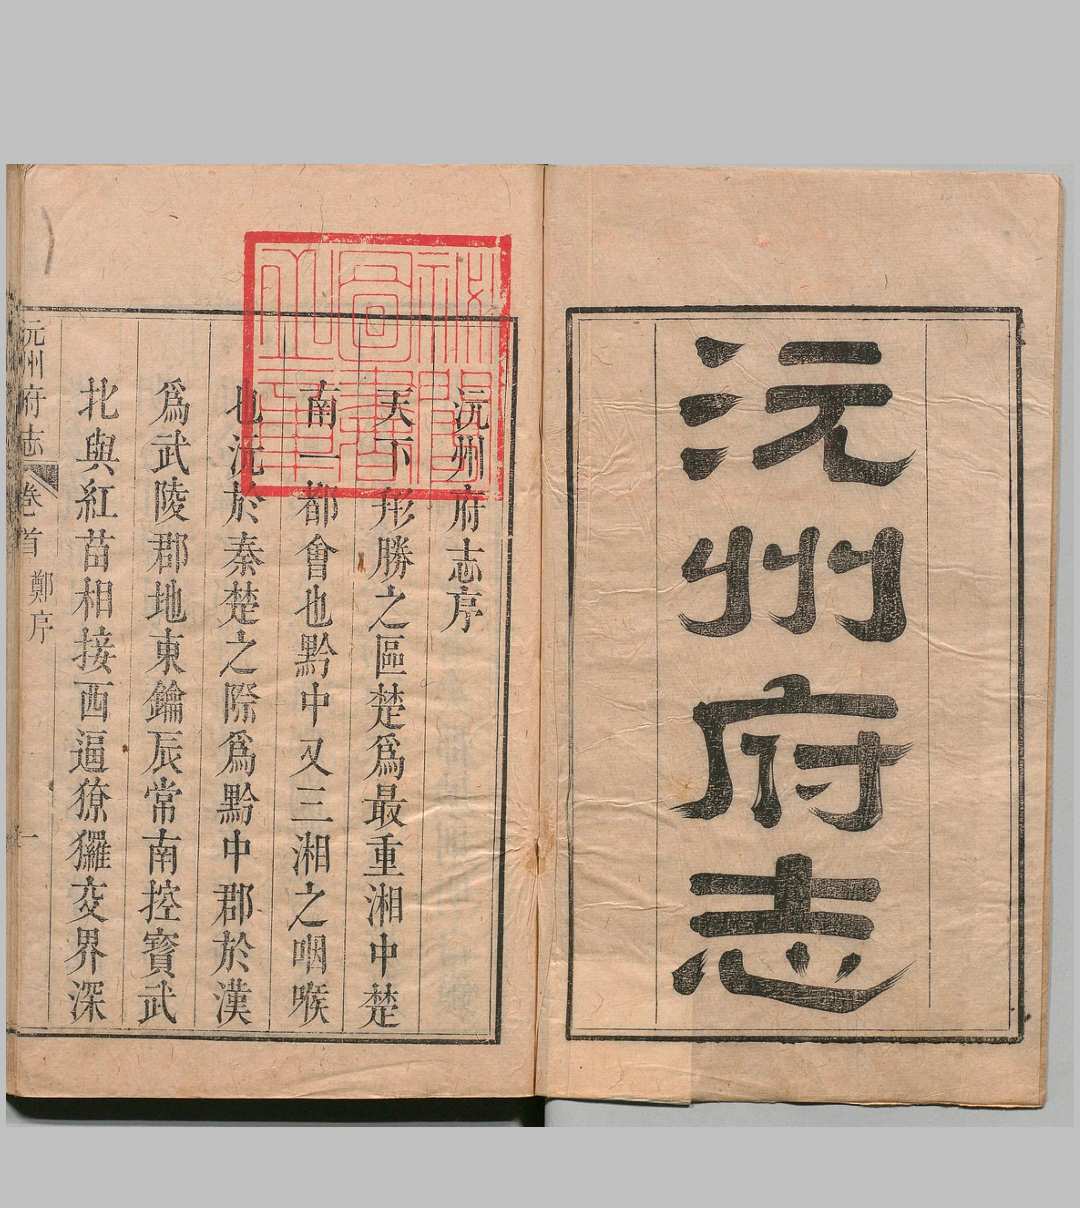 沅州府志
沅州府志序
天下形勝之區楚爲最重湘中楚
南一都會也黔中又三湘之咽喉
也沅於秦楚之際爲黔中郡於漢
爲武陵郡地東鑰辰常南控寳武
北與紅苗相接西逼獠玀交界深
沅州府志 卷首 鄭序 一
秘閣
圖書
之章